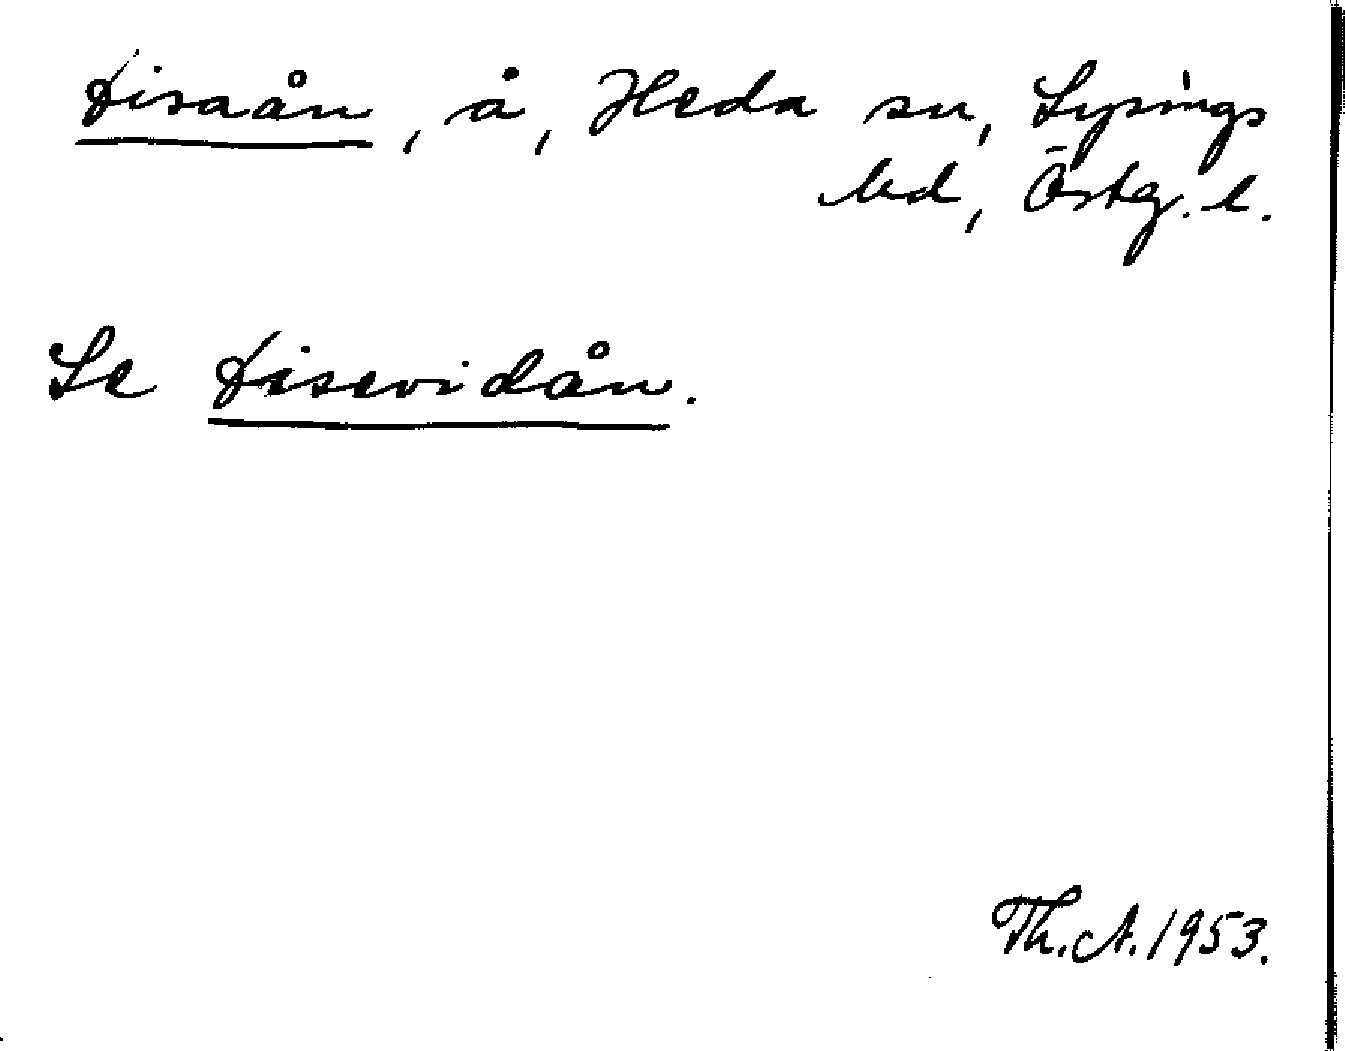 Disaån, å, Heda sn, Lysings
hd, Östg. l.
Se Disevidån.
Th. A. 1953.